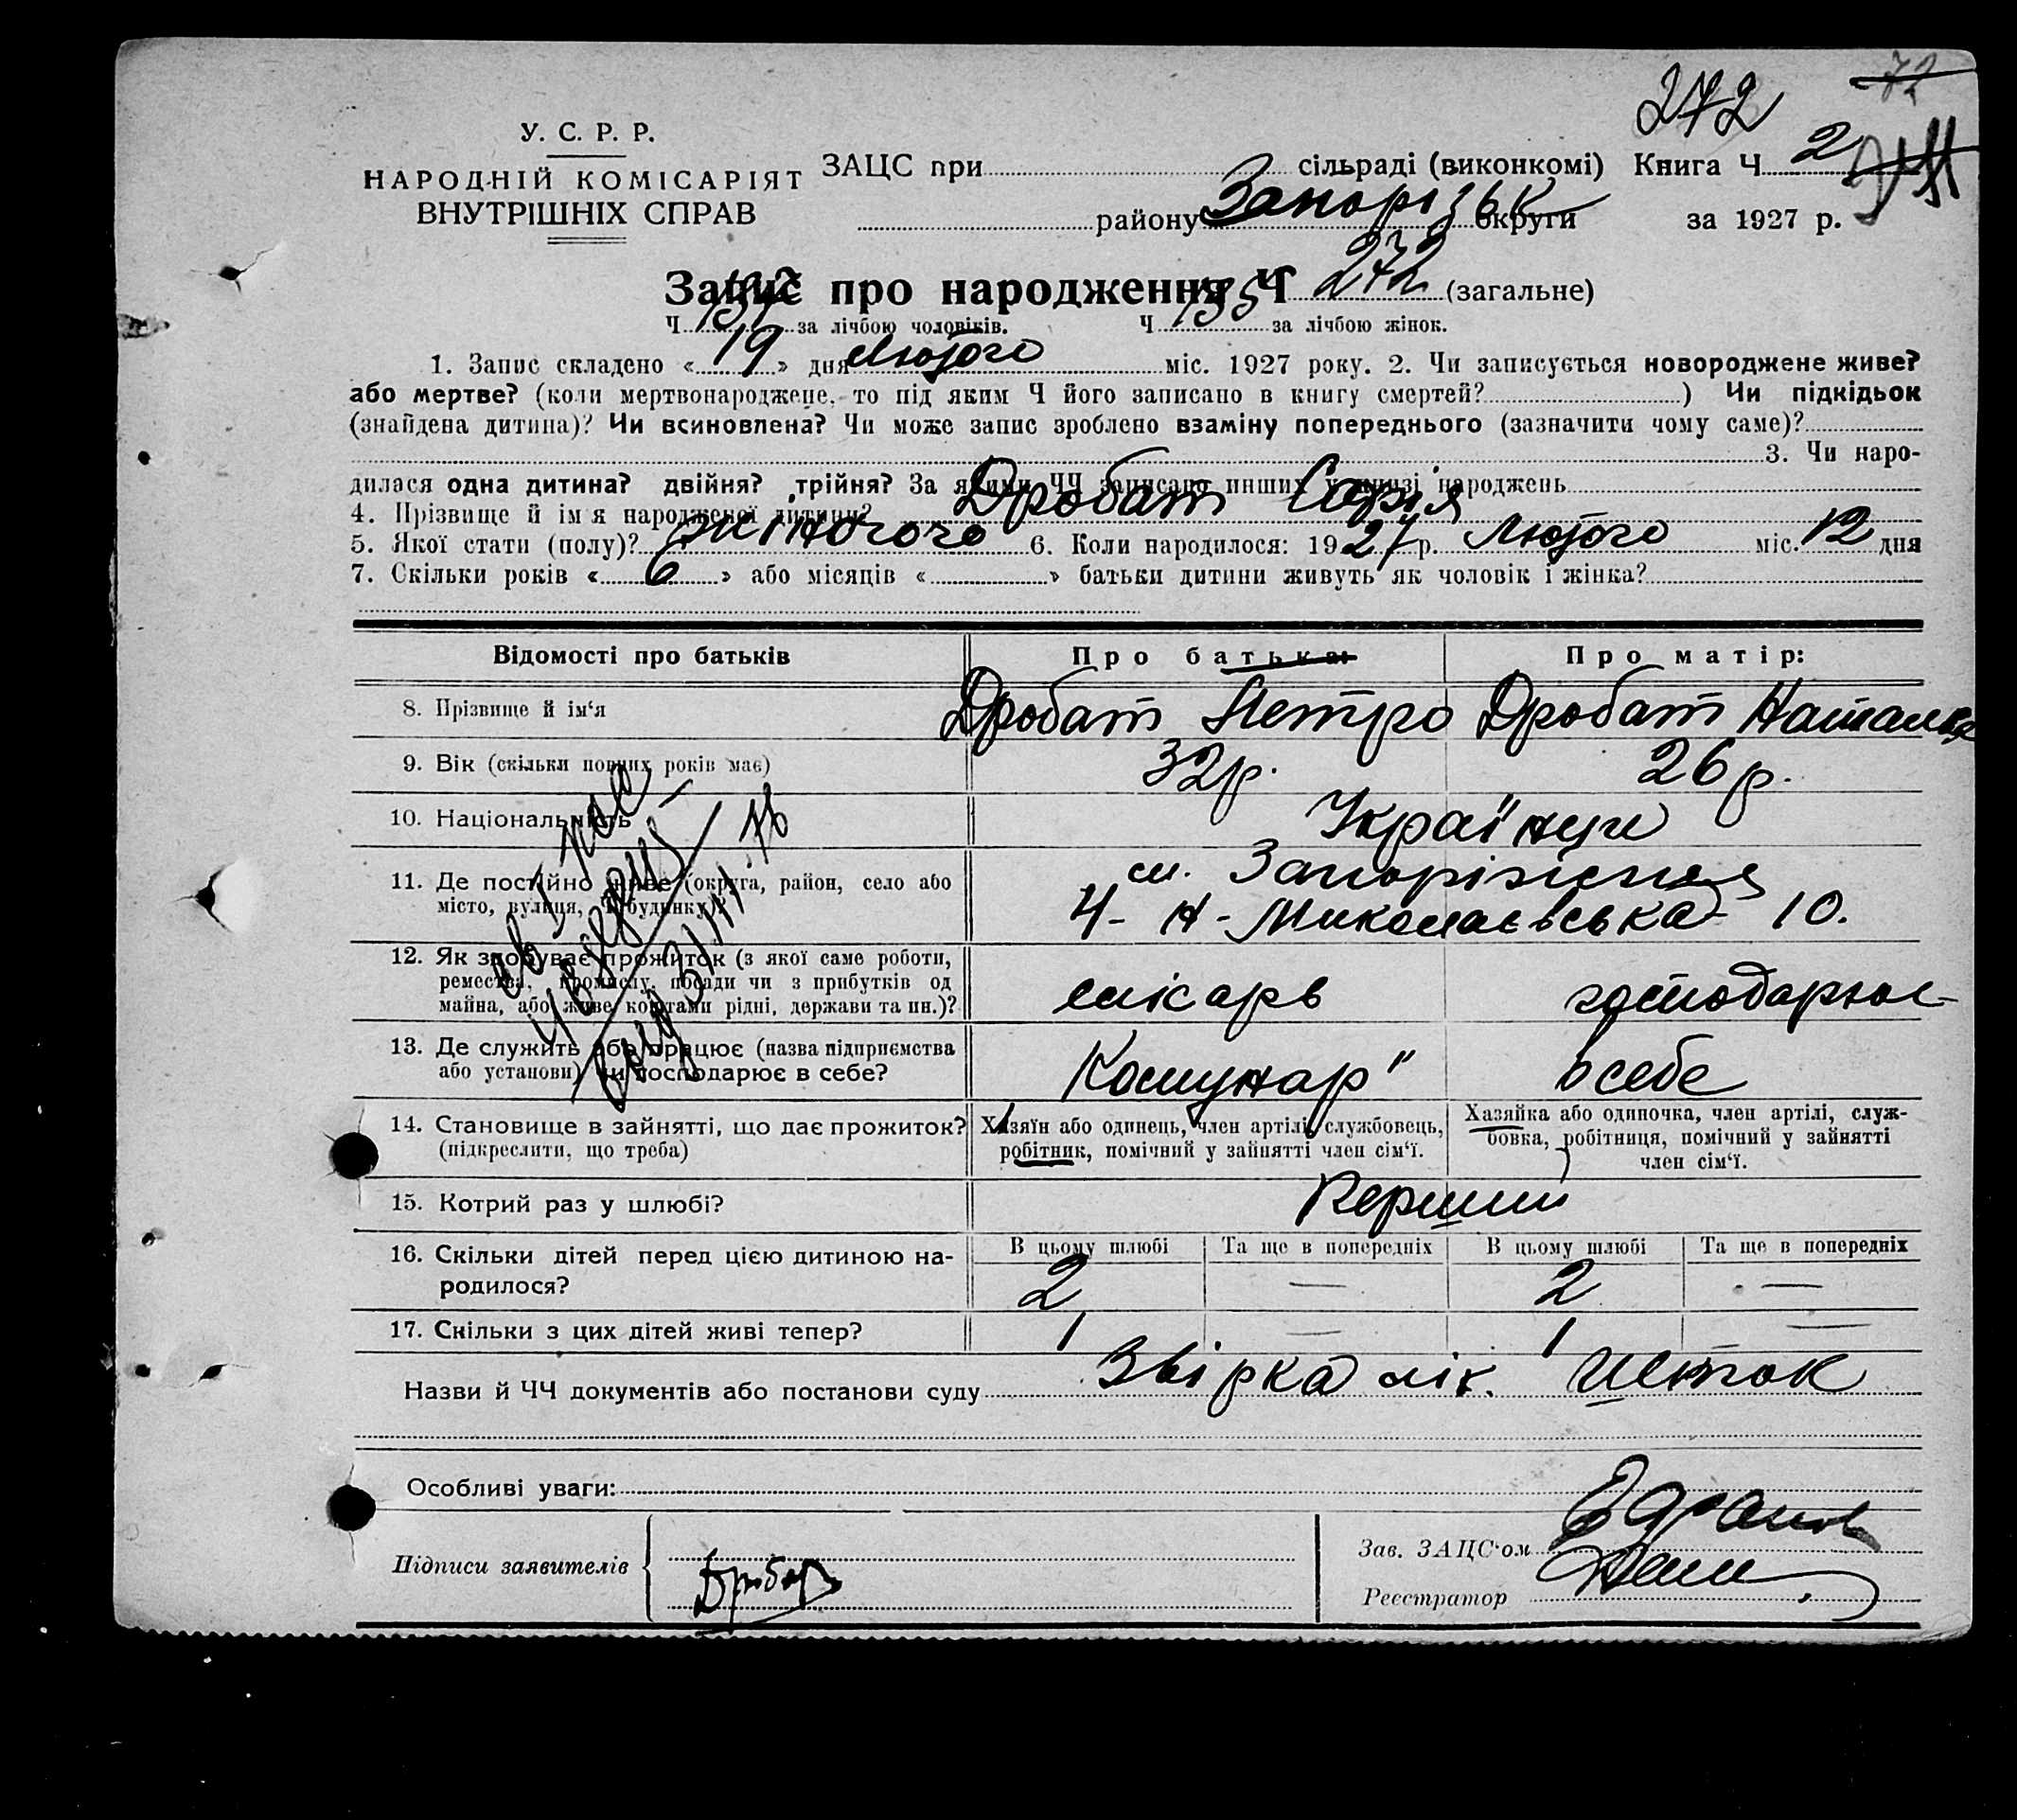 72
272
У. С. Р. Р.
НАРОДНІЙ КОМІСАРІЯТ
ВНУТРІШНІХ СПРАВ
ЗАЦС при сільраді (виконкомі) Книга Ч. 2
району Запорізьк округи за 1927 р.
Запис про народження Ч 272 (загальне)
Ч. 137 за лічбою чоловіків. Ч. 135 за лічбою жінок.
1. Запис складено « 19 » дня Лютого міс. 1927 року. 2. Чи записується новороджене живе?
або мертве? (коли мертвонароджене, то під яким Ч його записано в книгу смертей? ) Чи підкідьок
(знайдена дитина)? Чи всиновлена? Чи може запис зроблено взаміну попереднього (зазначити чому саме)?
3. Чи наро-
дилася одна дитина? двійня? трійня? За якими ЧЧ записано инших у книзі народжень
4. Прізвище й ім'я народженої дитини? Дробат Софія
5. Якої стати (полу)? жіночого 6. Коли народилося: 1927 р. Лютого міс. 12 дня
7. Скільки років « 6 » або місяців « » батьки дитини живуть як чоловік і жінка?
Відомості про батьків Про батька: Про матір:
8. Прізвище й ім'я Дробат Петро Дробат Наталка
9. Вік (скільки повних років має) 32р. 26р.
10. Національність Українці
11. Де постійно живе (округа, район, село або м. Запоріжжя
місто, вулиця, Ч будинку)? Ч- Н-Миколаєвська 10.
12. Як здобуває прожиток (з якої саме роботи,
ремества, промислу, посади чи з прибутків од
майна, або живе коштами рідні, держави та ин.)?
13. Де служить або працює (назва підприємства Комунар" в себе
або установи) чи господарює в себе?
14. Становище в зайнятті, що дає прожиток? Хазяїн або одинець, член артілі, службовець, Хазяйка або одиночка, член артілі, служ-
(підкреслити, що треба) робітник, помічний у зайнятті член сім'ї. бовка, робітниця, помічний у зайнятті
член сім'ї.
15. Котрий раз у шлюбі? Перший
16. Скільки дітей перед цією дитиною на- В цьому шлюбі Та ще в попередніх В цьому шлюбі Та ще в попередніх
родилося? 2 — 2 —
17. Скільки з цих дітей живі тепер? 1 — 1 —
Назви й ЧЧ документів або постанови суду Звірка лік.
Особливі уваги:
Підписи заявителів
Зав. ЗАЦС'ом
Реєстратор